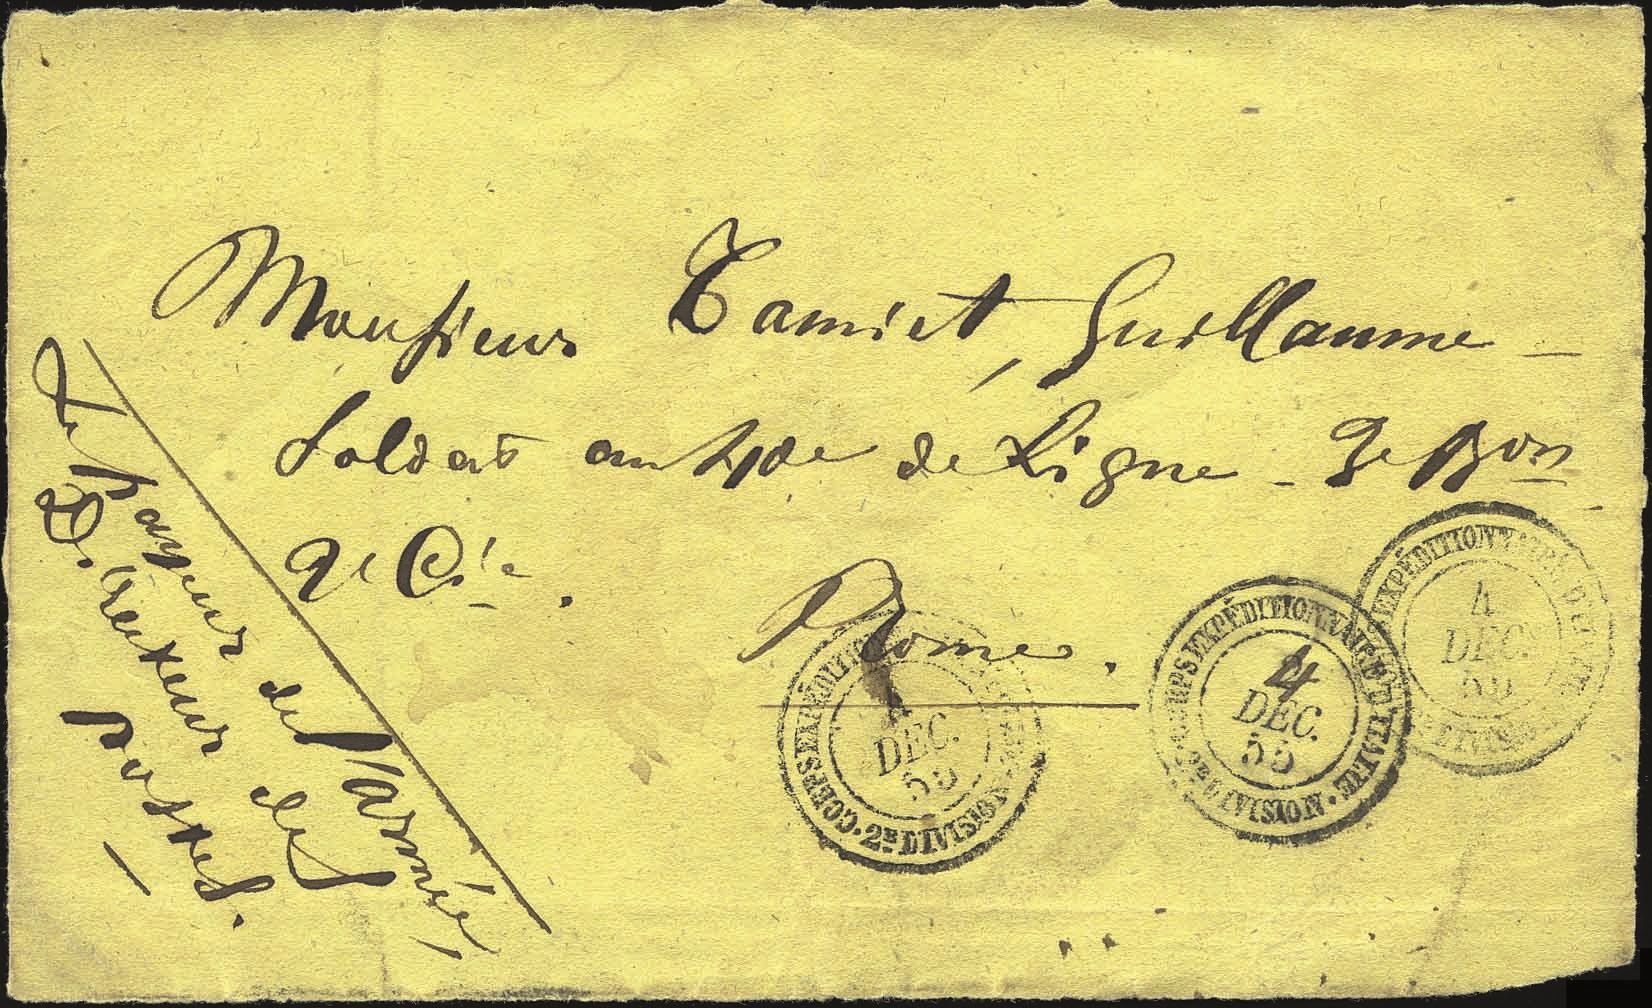 Monsieur Tamiet, Guillaume –
Soldat au 40e de Ligne – 3e Bon
2e Cie.
Rome.
Le payeur de l'armée,
Directeur des
postes.
CORPS EXPÉDIT • 2E DIVISION •
4
DEC.
55
CORPS EXPÉDITIONNAIRE D'ITALIE • 2E DIVISION •
4
DEC.
55
EXPÉDITIONN
4
DEC.